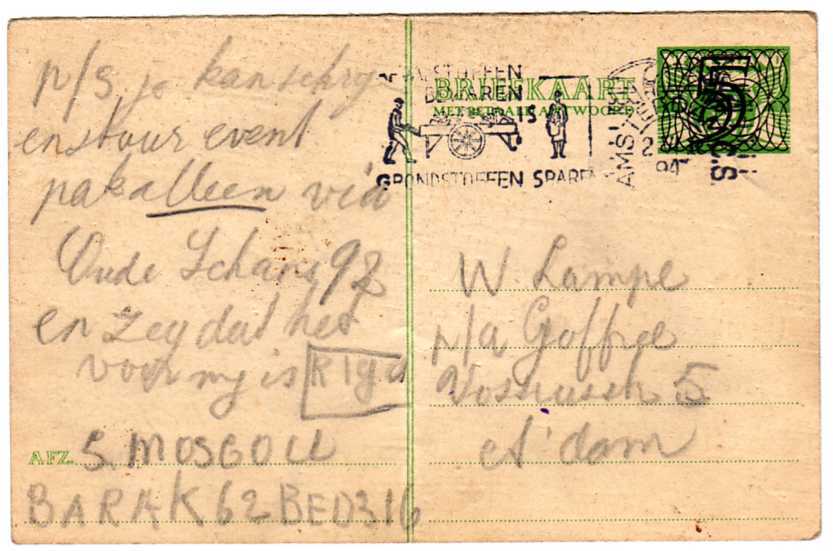 p/s je kan schrij-
en stuur event
pak alleen via
Oude Schans 92
en zeg dat het
voor my is Riga
AFZ. S. MOSGOLL
BARAK 62 BED 316
BRIEFKAART
MET BETAALD ANTWOORD
STOFFEN
IS
GRONDSTOFFEN SPAREN
AMST
5
W Lampe
p/a Goffrie
5
A'dam